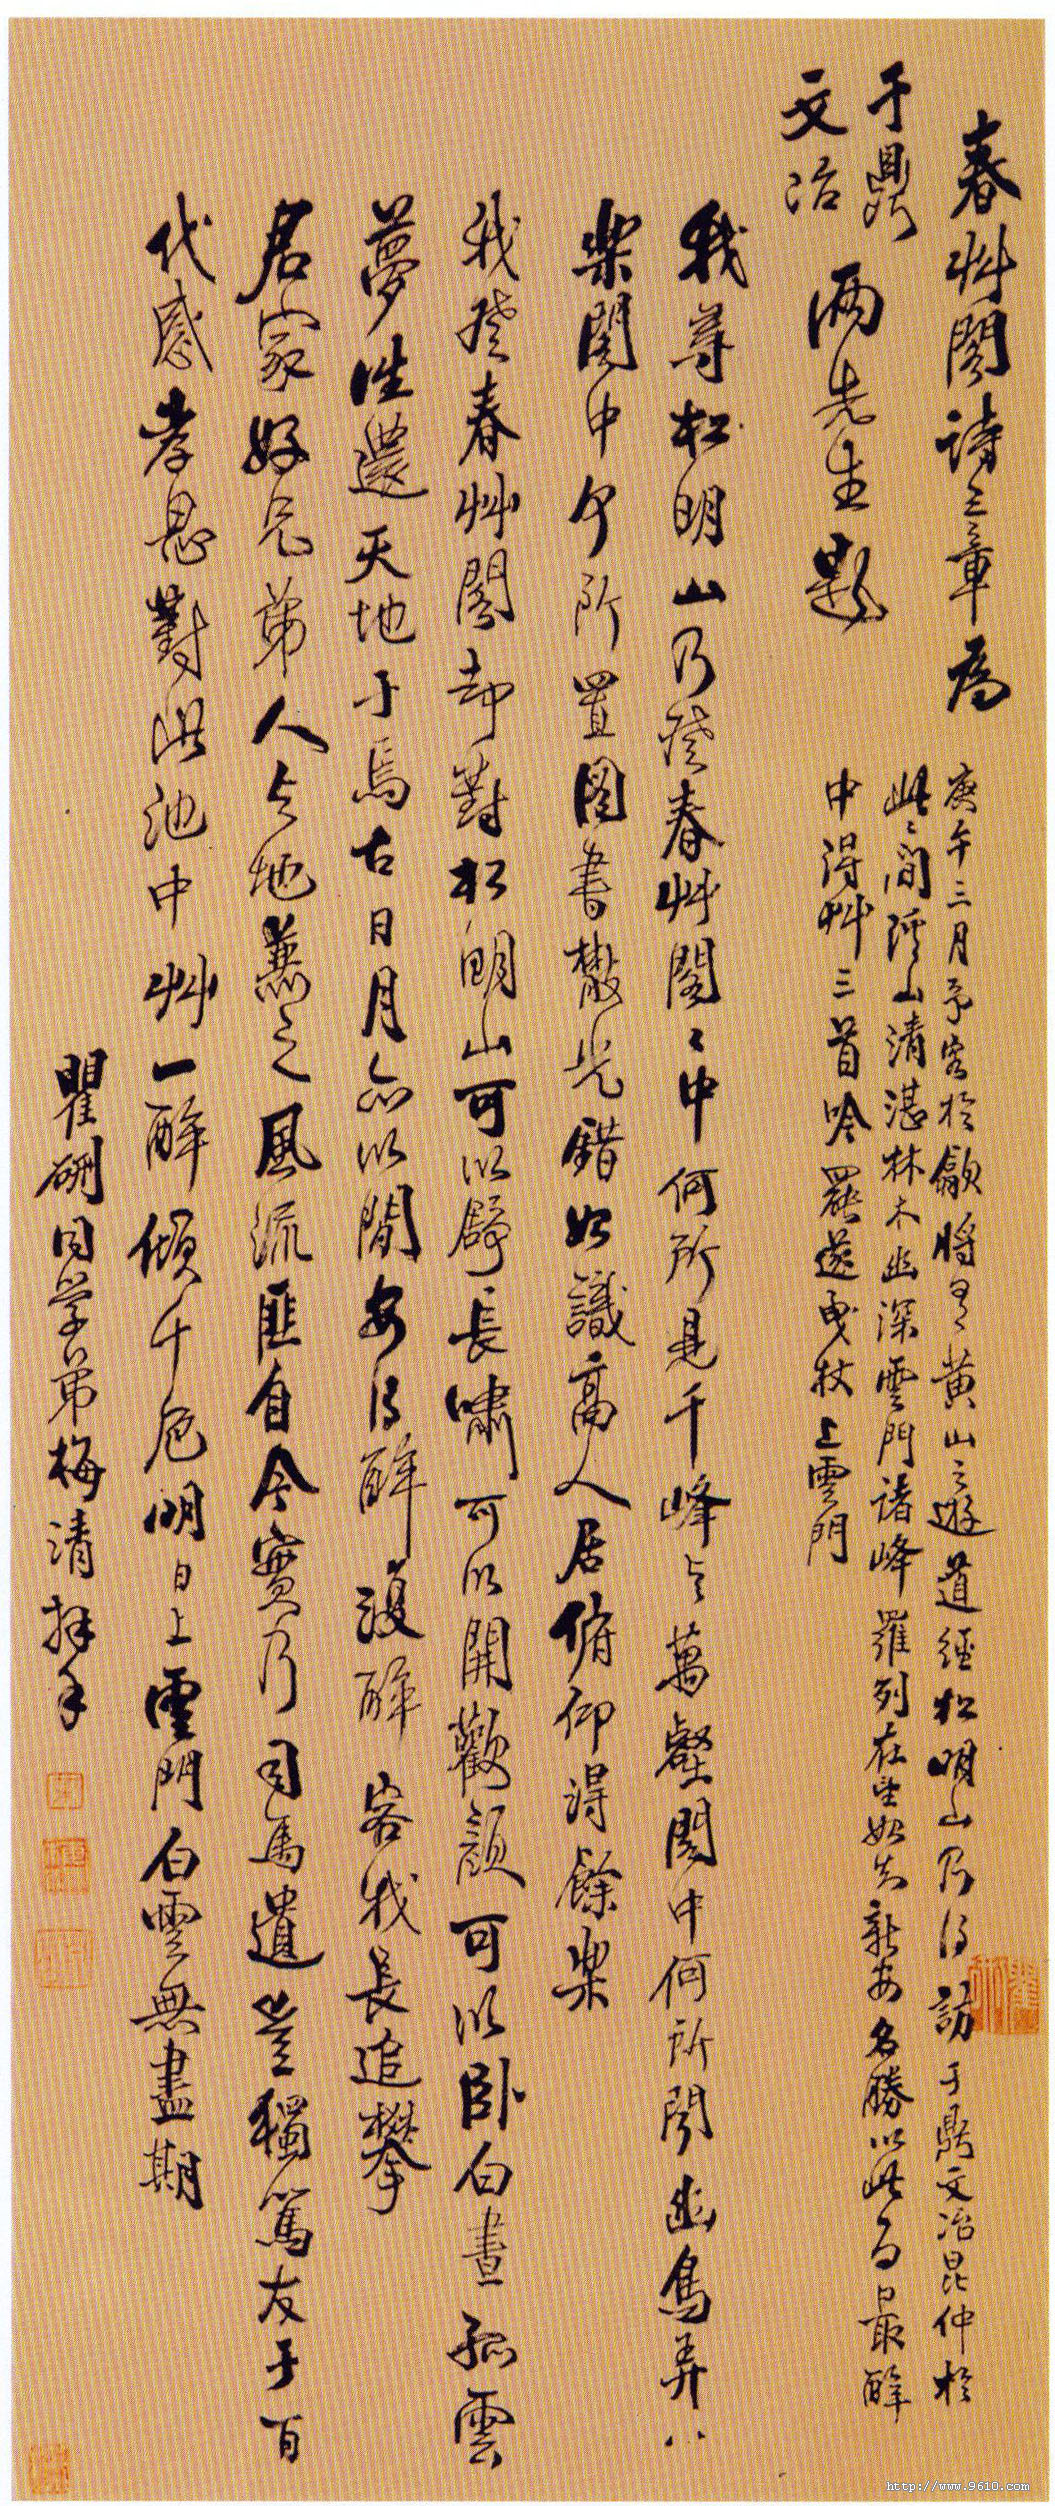 春艸閣詩三章為
于鼎
文冶
兩先生題
庚午三月予客於歙將有黃山之遊道經松明山乃得訪于鼎文冶昆仲於
此間溪山清湛林木幽深雲門諸峰羅列在望始知新安名勝以此為最醉
中得艸三首吟罷遂曳杖上雲門
我尋松明山乃登春艸閣〻中何所見千峰與萬壑閣中何所聞幽鳥弄八
樂閣中何所置圖書散光錯始識高人居俯仰得餘樂
我登春艸閣却對松明山可以舒長嘯可以開歡顏可以臥白晝孤雲
夢往還天地于焉古日月亦以閒安得醉復醉客我長追攀
君家好兄弟人與地兼之風流匪自今實乃司馬遺豈獨篤友于百
代感孝思對此池中艸一醉傾十卮明日上雲門白雲無盡期
瞿硎同學弟梅清拜手
http://www.9610.com